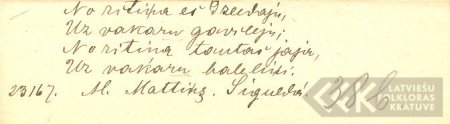 No rītiņa es dzeedaju,
Uz vakaru gavilēju;
No rītiņa tautas jāja,
Uz vakaru balēliņi.
23167. M. Mattiņš. Siguldā.
386
LATVIEŠU
FOLKLORAS
KRĀTUVE